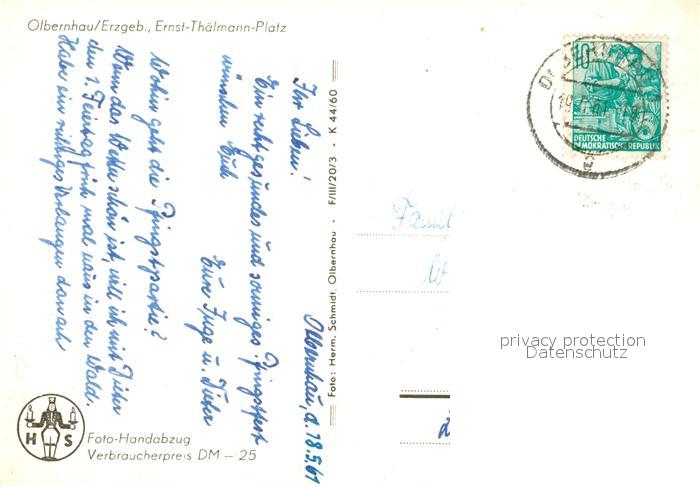 Olbernhau/Erzgeb., Ernst-Thälmann-Platz
Olbernhau, d. 18.5.61
Ihr Lieben!
Ein recht gesundes und sonniges Pfingstfest
wünschen Euch
Eure Inge u. Dieter
Wohin geht die Pfingstpartie?
Wenn das Wetter schön ist, will ich mit Dieter
den 1. Feiertag früh mal raus in den Wald.
Habe ein richtiges Verlangen danach
H S
Foto-Handabzug
Verbraucherpreis DM –.25
Foto: Herm. Schmidt, Olbernhau · F/III/20/3 · K 44/60
10
DEUTSCHE
DEMOKRATISCHE REPUBLIK
Famil
privacy protection
Datenschutz